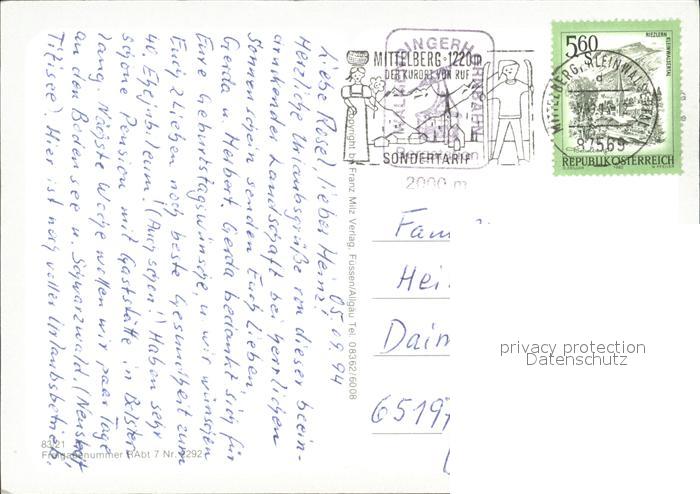 05.09.94
Liebe Rosel, lieber Heinz!
Herzliche Urlaubsgrüße von dieser beein-
druckender Landschaft bei herrlichen
Sonnenschein senden Euch Lieben
Gerda u. Herbert. Gerda bedankt sich für
Eure Geburtstagswünsche, u. wir wünschen
Euch 2 Lieben noch beste Gesundheit zum
40. Ehejubileum! (Auch schon!) Haben sehr
schöne Pension mit Gaststätte in
lang. Nächste Woche wollen wir paar Tage
an den Bodensee u. Schwarzwald. (Neustadt,
Titisee). Hier ist noch voller Urlaubsbetrieb.
83/21
Freigabenummer RAbt 7 Nr. 2292
Copyright by Franz Milz Verlag, Füssen/Allgäu Tel. 08362/6008
MITTELBERG·1220m
DER KURORT VON RUF
SONDERTARIF
2000 m
MITTELBERG, KLEINWALSERTAL
87569
5.60
RIEZLERN
KLEINWALSERTAL
REPUBLIK ÖSTERREICH
Fam
Hei
Daim
65197
privacy protection
Datenschutz